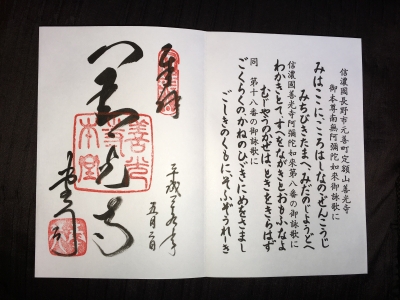 信濃國長野市元善町定額山善光寺
御本尊南無阿彌陀如來御詠歌に
みはここにこころはしなのぜんこうじ
みちびきたまへみだのじょうどへ
信濃國善光寺阿彌陀如來第八番の御詠歌に
わかきとてすへをながきとおもふなよ
むじやうのかぜはときをきらはず
同 第十八番の御詠歌に
ごくらくのかねのひびきにめをさまし
ごしきのくもにそふぞうれしき
奉拝
平成
五月二日
善光寺
善光寺本堂